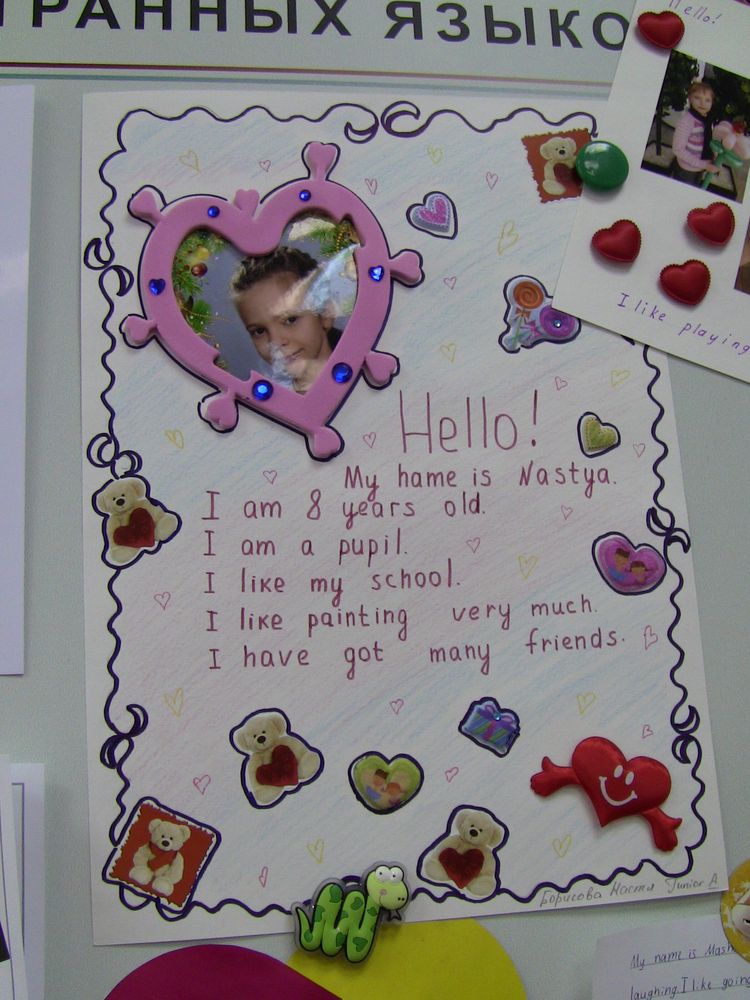 ТРАННЫХ ЯЗЫКО
Hello!
I like playing
Hello!
My hame is Nastya.
I am 8 years old.
I am a pupil.
I like my school.
I like painting very much.
I have got many friends.
Борисова Настя Junior A
My name is Mash
laughing. I like going